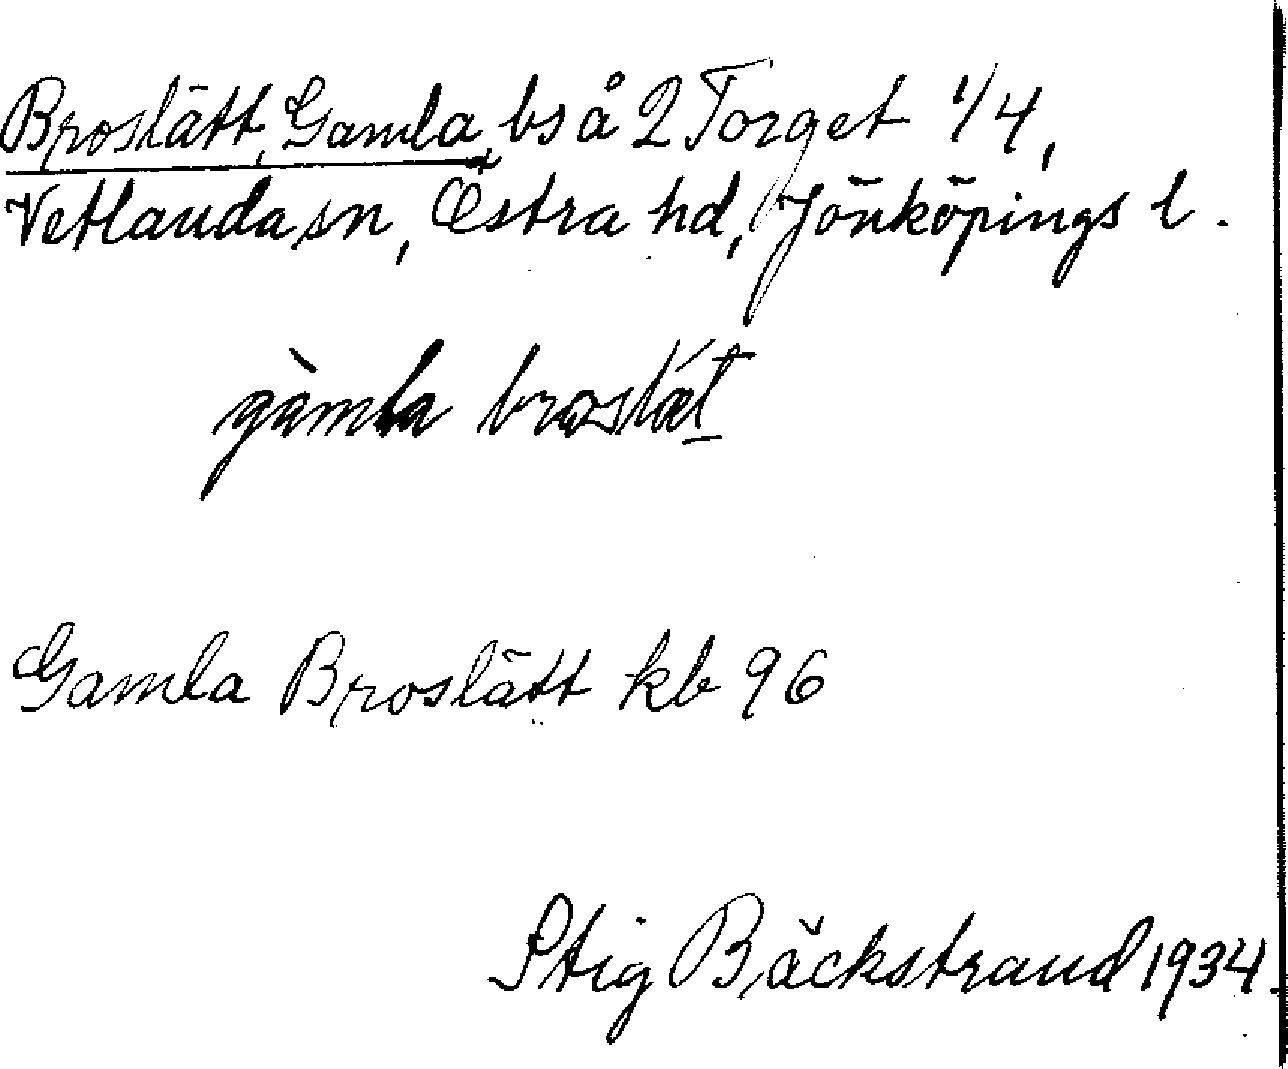 Broslätt, Gamla, bs å 2 Torget 1/4,
Vetlanda sn, Östra hd, Jönköpings l.
gàmla broslǽt
Gamla Broslätt kb 96
Stig Bäckstrand 1934.